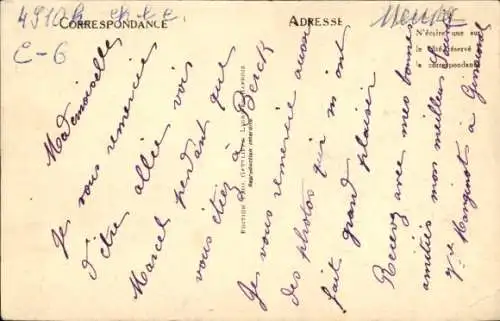 CORRESPONDANCE
ADRESSE
Meuse
E-6
N'écrire que sur
le côté réservé
la correspondance
Mademoiselle
Je vous remercie
d'être allée voir
Marcel pendant que
vous étiez à Berck
Je vous remercie aussi
des photos qui m'ont
fait grand plaisir
Recevez avec mes bonnes
amitiés mon meilleur
à
Reproduction interdite